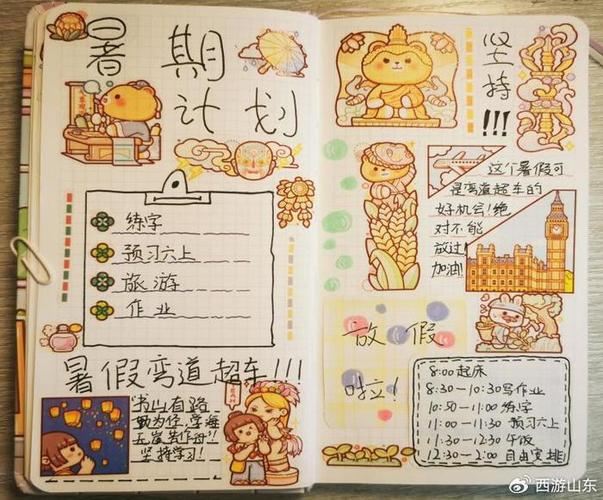 暑期
计划
练字
预习六上
旅游
作业
暑假弯道超车!!!
书山有路
勤为径,学海
无涯苦作舟!!
坚持学习!
坚持!!!
这个暑假可
是弯道超车的
好机会!绝
对不能
放过!
加油!
放假
啦!
8:00起床
8:30-10:30写作业
10:50-11:00练字
11:00-11:30 预习六上
11:30-12:30 午饭
12:30-2:00 自由安排
@西游山东